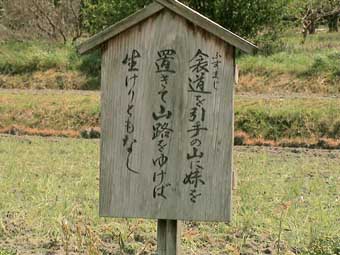 ふすまじ
衾道を引手の山に妹を
置きて山路をゆけば
生けりともなし